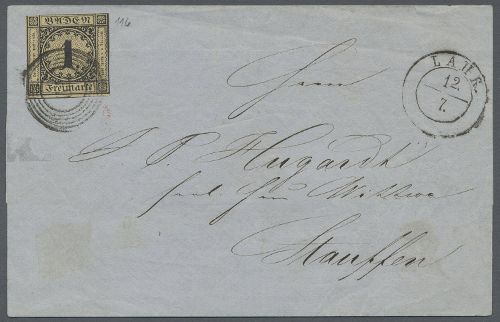 BADEN
1
Freimarke
116
LAHR
12.
7.
Herrn
J. P. Hugardt
seel. Herrn Wittwe
Stauffen